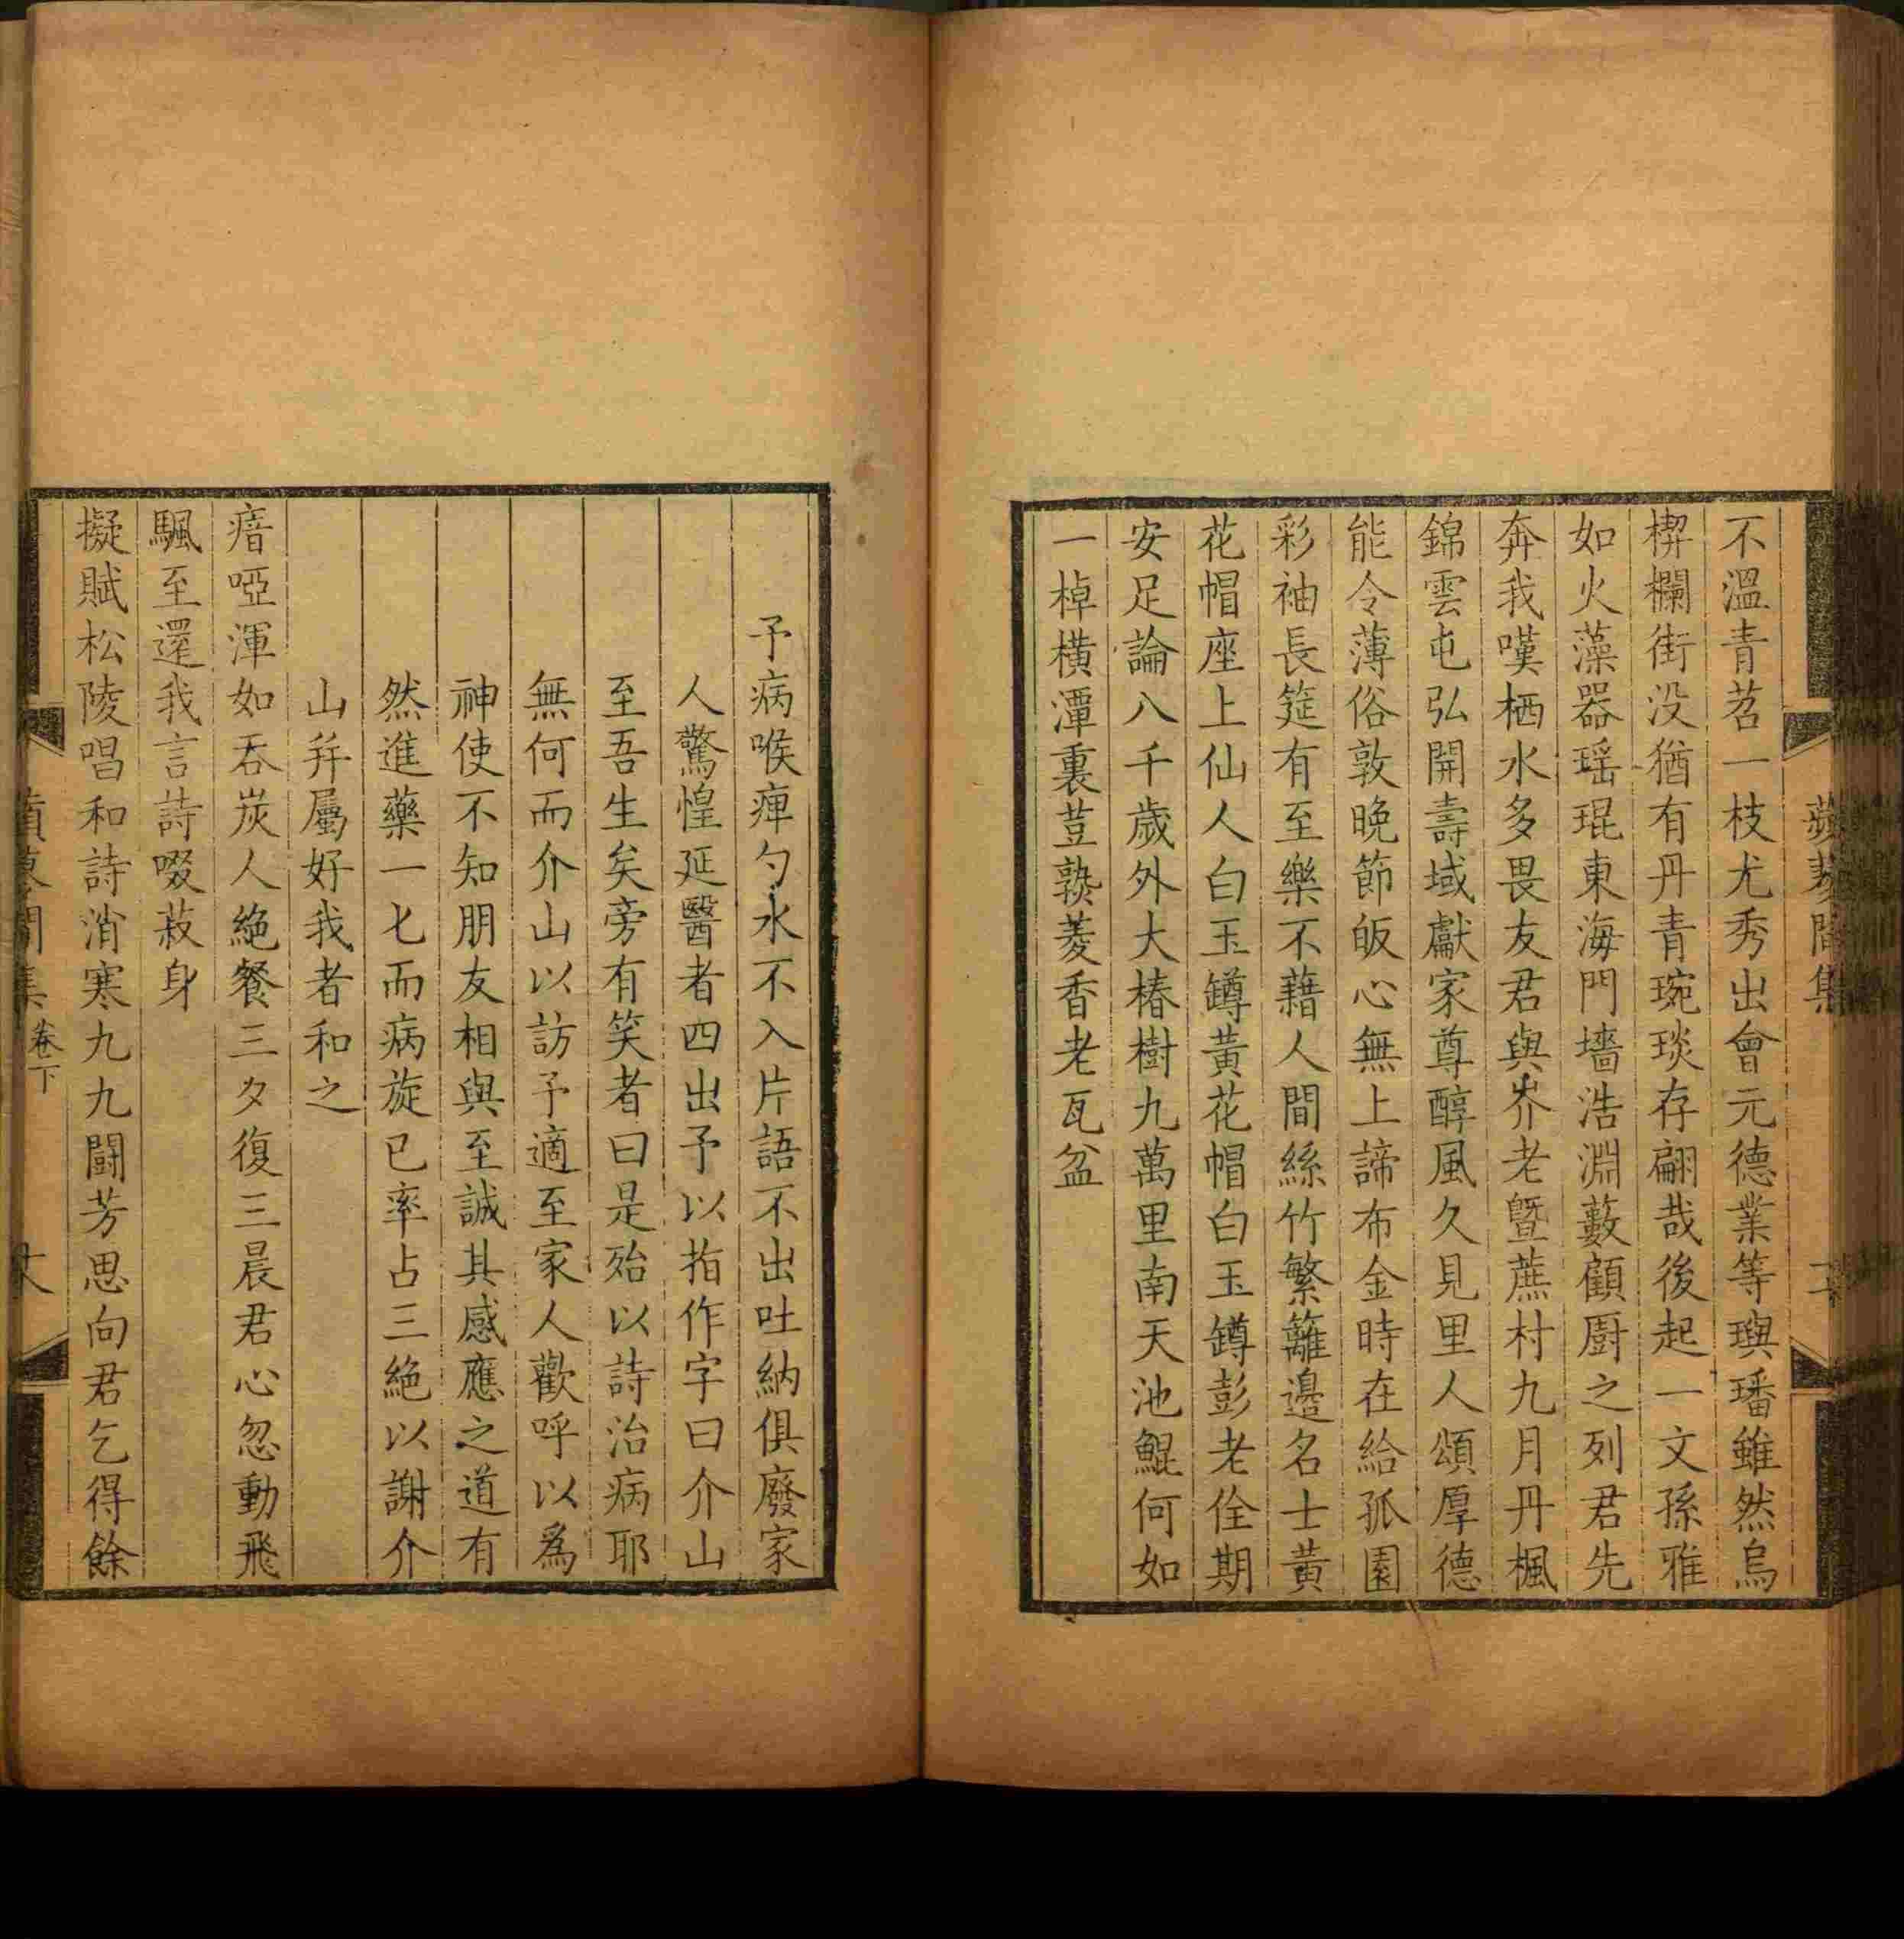 不溫青若一枝尤秀出會元德業等璵璠雖然烏
楔欄街没猶有丹青琬琰存翩哉後起一文孫雅
如火藻器瑶琨東海門墻浩淵藪顧厨之列君先
奔我嘆栖水多畏友君與齐老暨蔗村九月丹楓
錦雲屯弘開壽域獻家尊醇風久見里人頌厚德
能令薄俗敦晚節皈心無上諦布金時在給孤園
彩袖長筵有至樂不藉人間絲竹繁籬邊名士黄
花帽座上仙人白玉罇黃花帽白玉罇彭老佺期
安足論八千歲外大椿樹九萬里南天池鯤何如
一棹横潭裏荳孰菱香老瓦盆
予病喉痺勺水不入片語不出吐納俱廢家
人驚惶延醫者四出予以指作字曰介山
至吾生矣旁有笑者曰是殆以詩治病耶
無何而介山以訪予適至家人歡呼以爲
神使不知朋友相與至誠其感應之道有
然進藥一七而病旋已率占三絶以謝介
山并屬好我者和之
瘖啞渾如吞炭人絶餐三夕復三晨君心忽動飛
颿至還我言詩啜菽身
擬賦松陵唱和詩消寒九九鬭芳思向君乞得餘
卷下